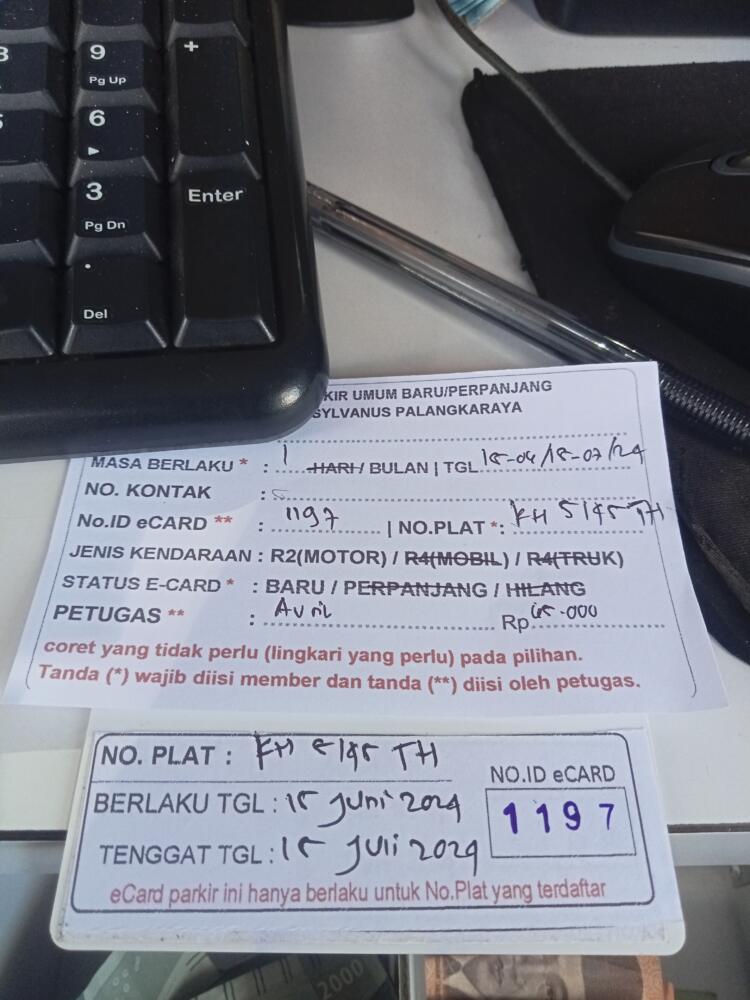 9
+
Pg Up
6
3
Enter
Pg Dn
.
Del
KIR UMUM BARU/PERPANJANG
SYLVANUS PALANGKARAYA
MASA BERLAKU * : 1 HARI / BULAN | TGL
NO. KONTAK :
No.ID eCARD ** : 1197 | NO.PLAT *: KH TH
JENIS KENDARAAN : R2(MOTOR) / R4(MOBIL) / R4(TRUK)
STATUS E-CARD * : BARU / PERPANJANG / HILANG
PETUGAS ** : Avril Rp
coret yang tidak perlu (lingkari yang perlu) pada pilihan.
Tanda (*) wajib diisi member dan tanda (**) diisi oleh petugas.
NO. PLAT : KH TH
NO.ID eCARD
BERLAKU TGL : 15 Juni 2024
1197
TENGGAT TGL : 15 Juli 2024
eCard parkir ini hanya berlaku untuk No.Plat yang terdaftar
2000